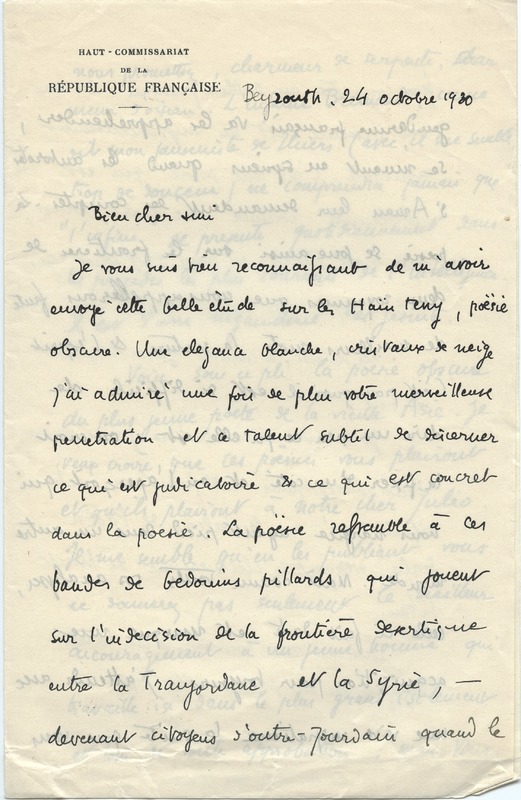 HAUT - COMMISSARIAT
DE LA
RÉPUBLIQUE FRANÇAISE
Beyrouth. 24 octobre 1930
Bien cher ami
Je vous suis bien reconnaissant de m'avoir
envoyé cette belle étude sur les Haïn teny, poësie
obscure. Une elegance blanche, cristaux de neige
j'ai admiré une fois de plus votre merveilleuse
penetration et ce talent subtil de discerner
ce qui est judicatoire & ce qui est concret
dans la poësie. La poësie ressemble à ces
bandes de bedouins pillards qui jouent
sur l'indecision de la frontière desertique
entre la Transjordanie et la Syrie, —
devenant citoyens d'outre-Jourdain quand le